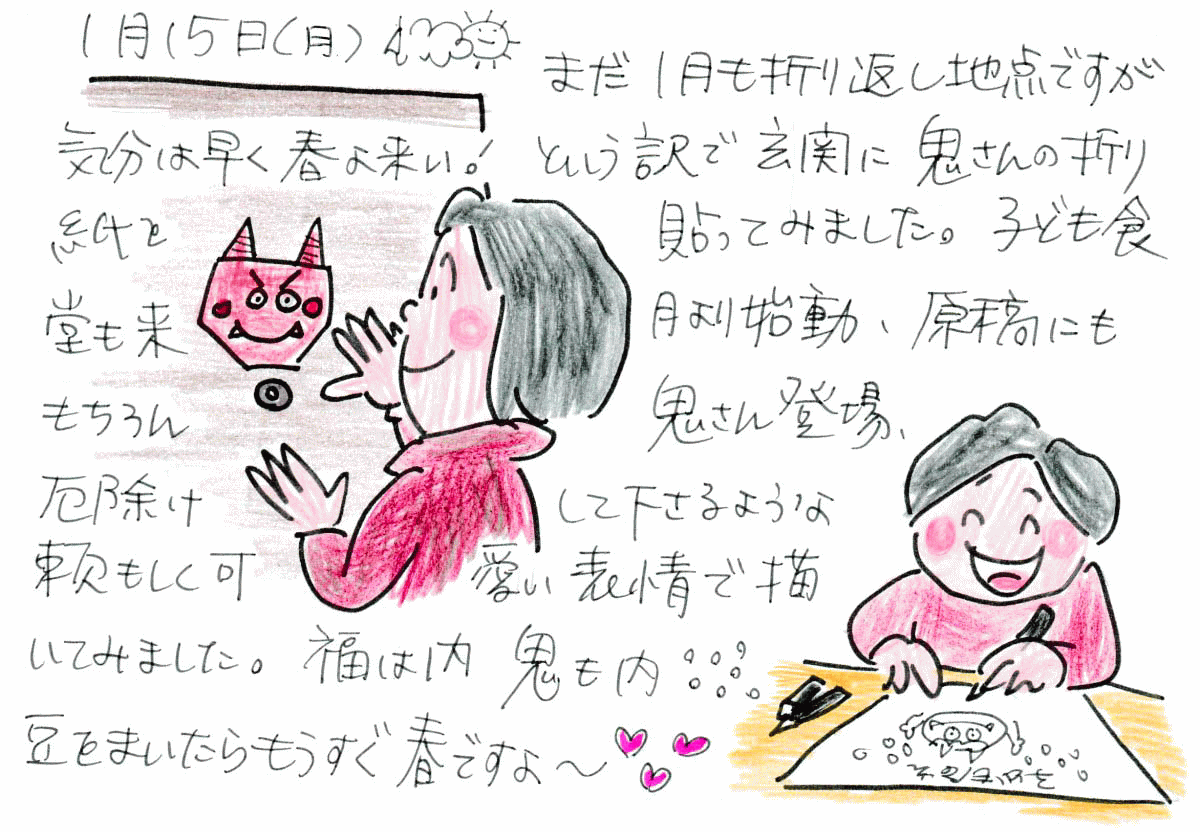 1月15日(月)
まだ1月も折り返し地点ですが
気分は早く春よ来い! という訳で玄関に鬼さんの折り
紙を貼ってみました。子ども食
堂も来月より始動、原稿にも
もちろん鬼さん登場、
厄除けして下さるような
頼もしく可愛い表情で描
いてみました。福は内 鬼も内
豆をまいたらもうすぐ春ですよ～